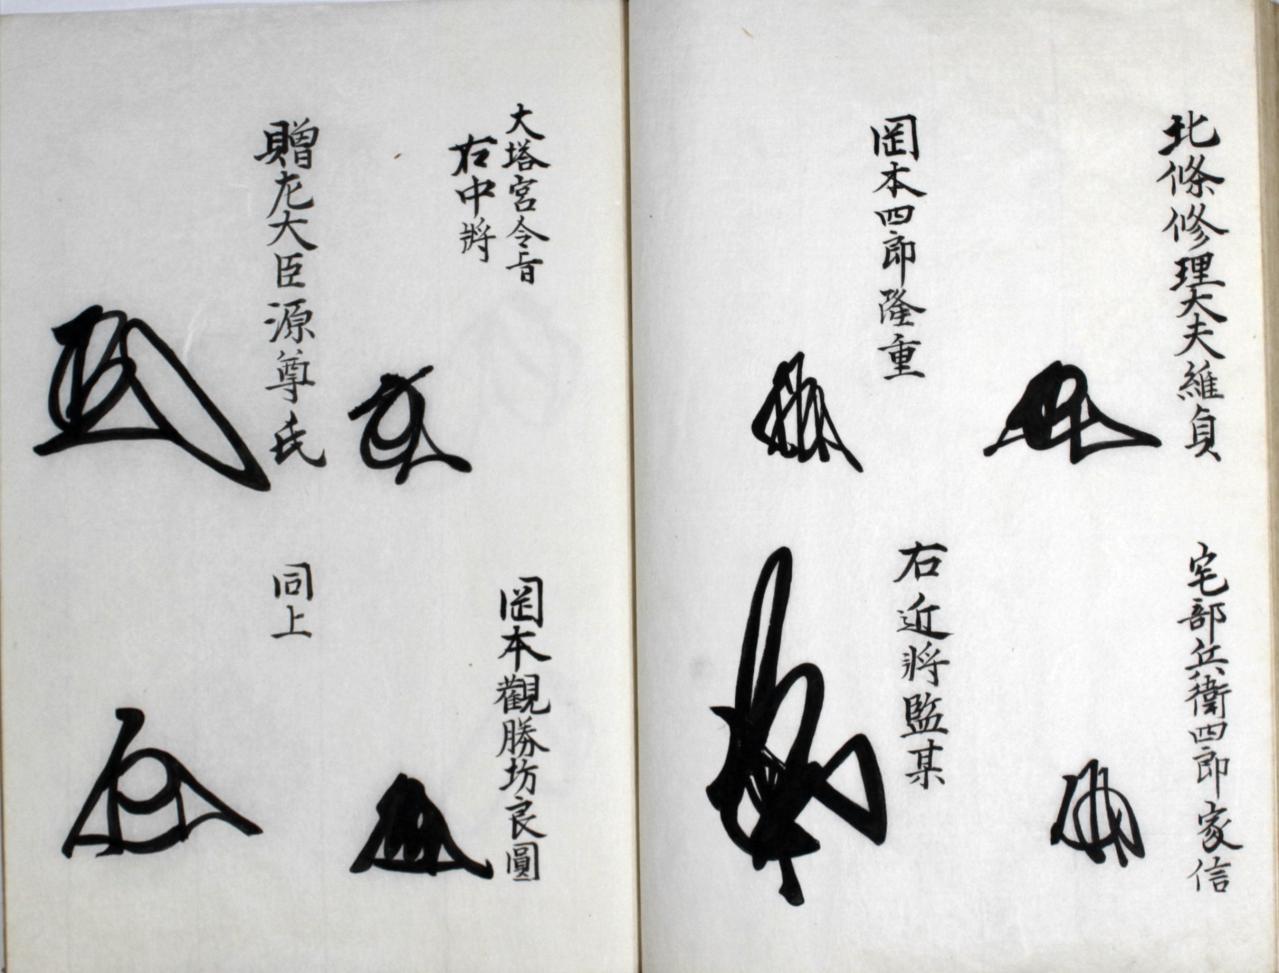 北條修理大夫維貞
宅部兵衛四郎家信
岡本四郎隆重
右近將監某
大塔宮令旨
右中將
岡本觀勝坊良圓
贈左大臣源尊氏
同上